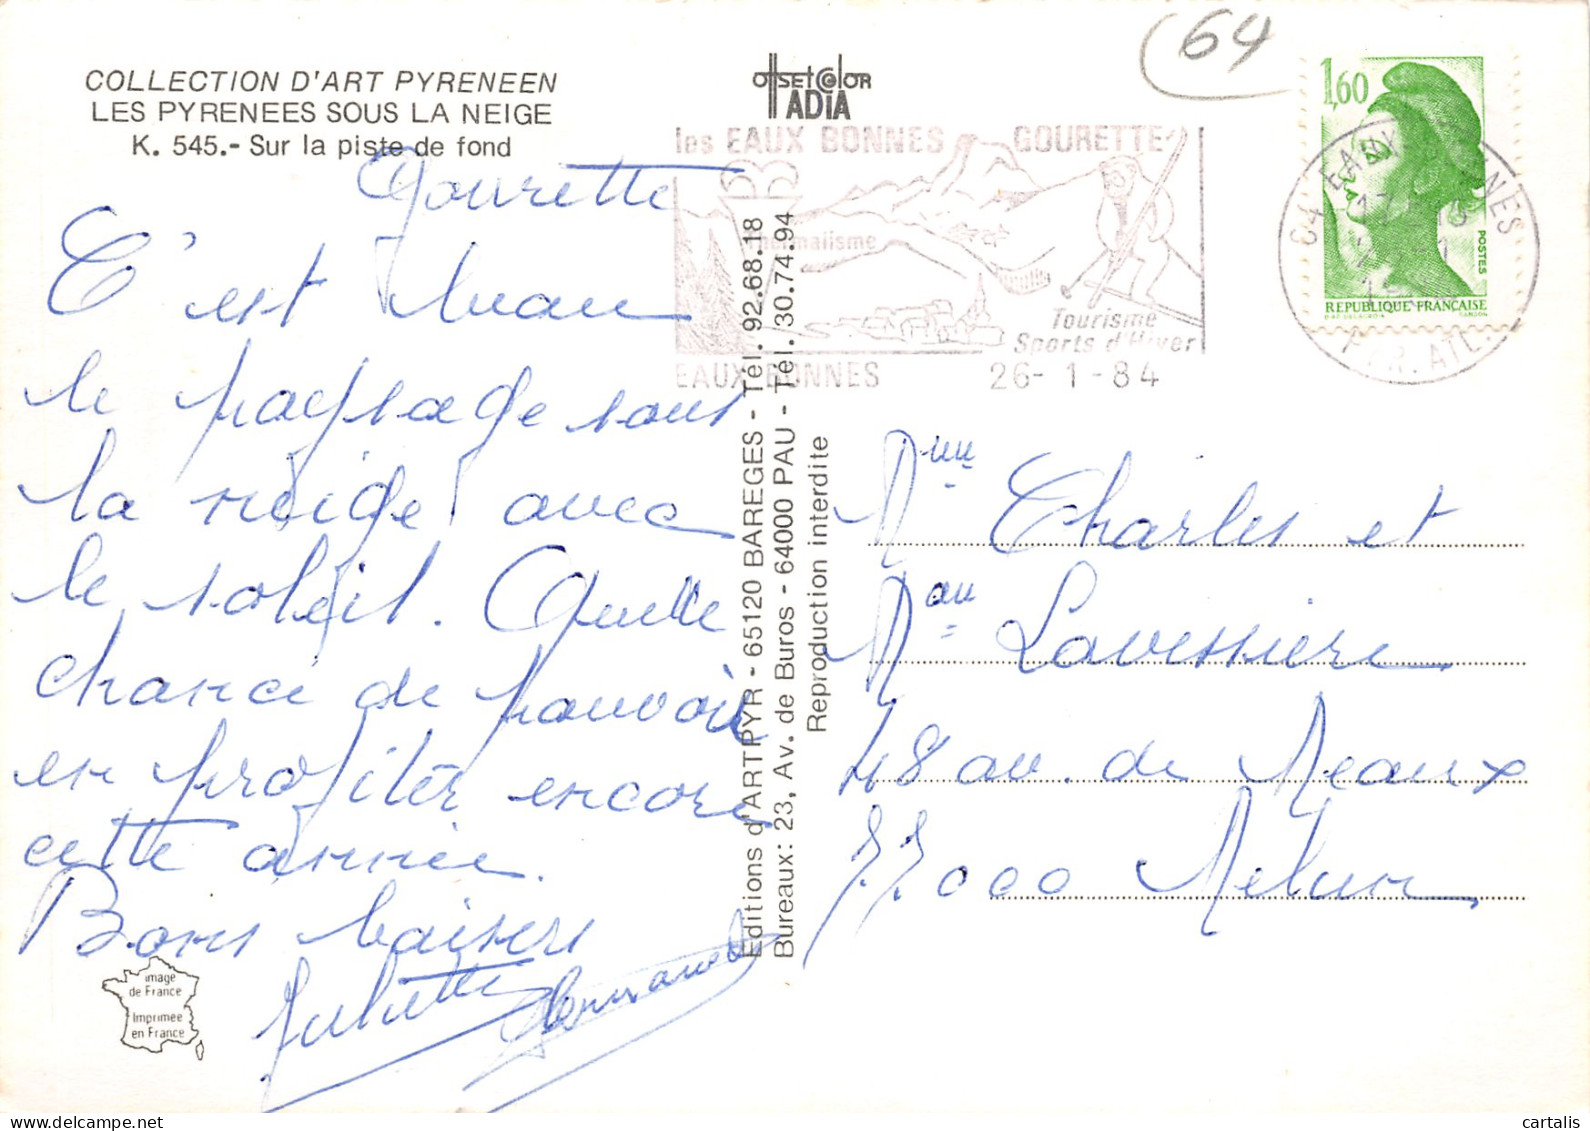 COLLECTION D'ART PYRENEEN
LES PYRENEES SOUS LA NEIGE
K. 545.- Sur la piste de fond
Gourette
C'est beau
le paysage sous
la neige avec
le soleil. Quelle
chance de pouvoir
en profiter encore
cette année.
Bons baisers
Juliette
image
de France
Imprimée
en France
OffsetColor
ADIA
Editions d'ARTPYR - 65120 BAREGES - Tél. 92.68.18
Bureaux: 23, Av. de Buros - 64000 PAU - Tél. 30.74.94
Reproduction interdite
64
les EAUX BONNES GOURETTE
Thermalisme
Tourisme
Sports d'Hiver
EAUX BONNES 26-1-84
1,60
POSTES
REPUBLIQUE FRANÇAISE
64 EAUX BONNES
PYR. ATL.
Charles et
Lavessiere
48 av. de Meaux
77000 Melun
cartalis